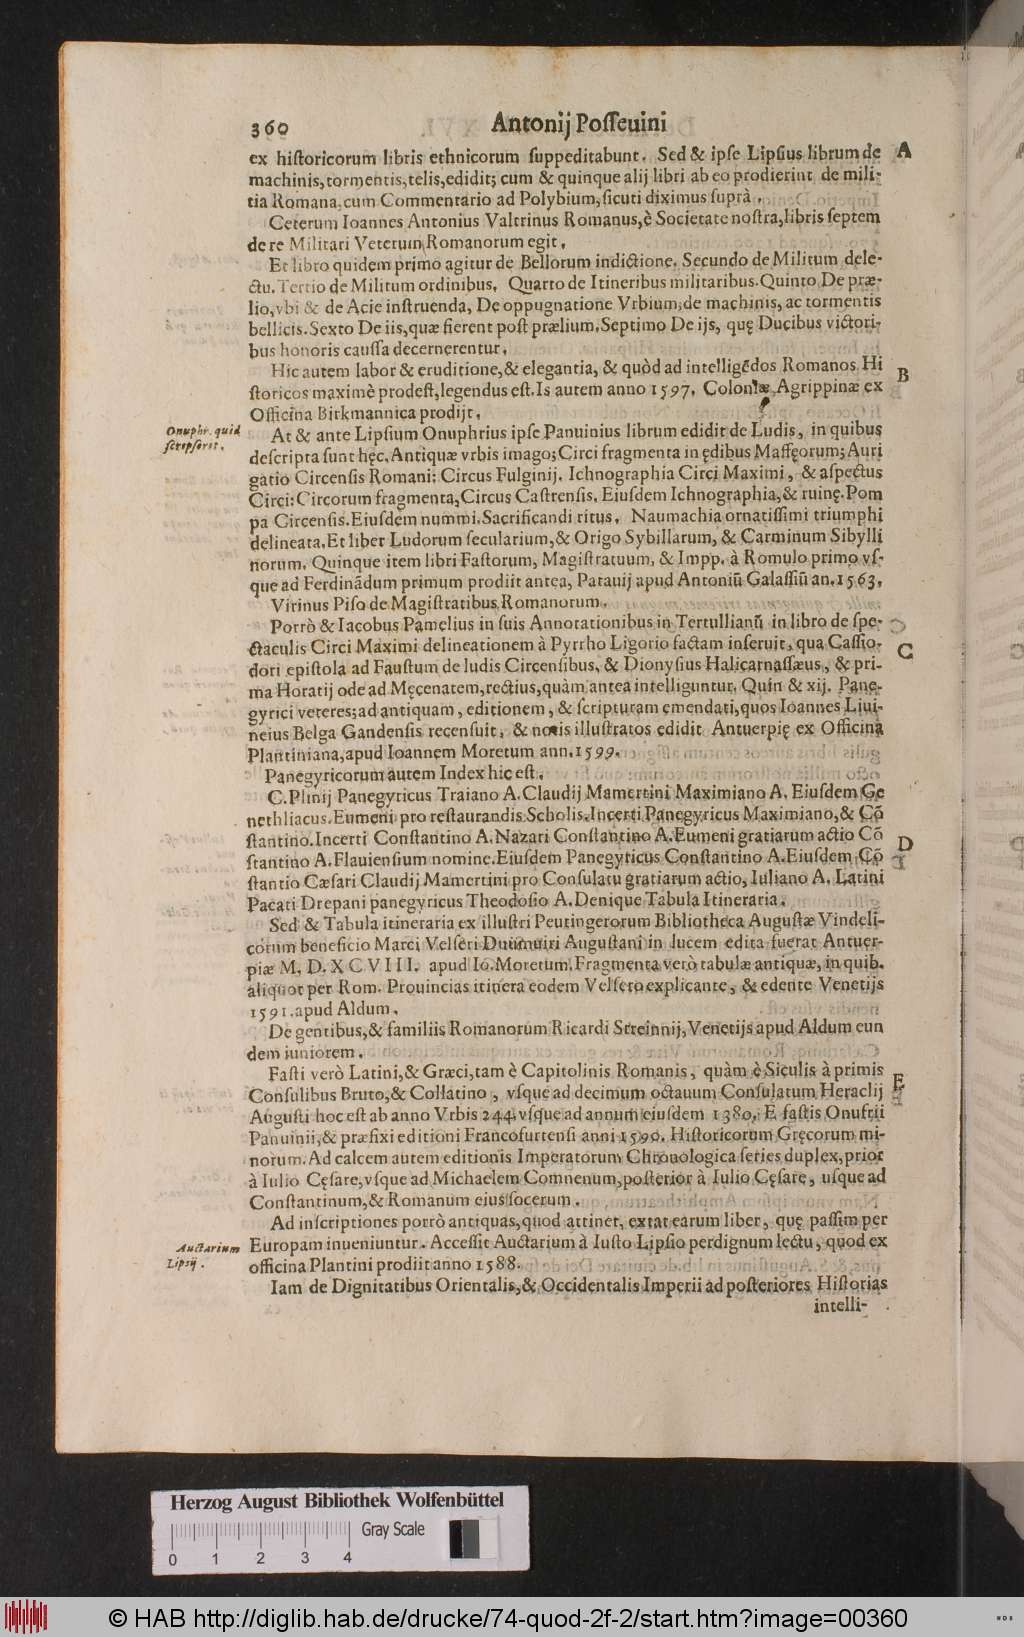 360 Antonij Posseuini
ex historicorum libris ethnicorum suppeditabunt. Sed & ipse Lipsius librum de A
machinis, tormentis, telis, edidit; cum & quinque alij libri ab eo prodierint de mili-
tia Romana, cum Commentario ad Polybium, sicuti diximus suprà.
Ceterum Ioannes Antonius Valtrinus Romanus, è Societate nostra, libris septem
de re Militari Veterum Romanorum egit.
Et libro quidem primo agitur de Bellorum indictione. Secundo de Militum dele-
ctu. Tertio de Militum ordinibus. Quarto de Itineribus militaribus. Quinto De præ-
lio, vbi & de Acie instruenda, De oppugnatione Vrbium, de machinis, ac tormentis
bellicis. Sexto De iis, quæ fierent post prælium. Septimo De ijs, quę Ducibus victori-
bus honoris caussa decernerentur.
Hic autem labor & eruditione, & elegantia, & quòd ad intelligẽdos Romanos Hi B
storicos maximè prodest, legendus est. Is autem anno 1597. Coloniæ Agrippinæ ex
Officina Birkmannica prodijt.
Onuphr. quid
scripserit.
At & ante Lipsium Onuphrius ipse Panuinius librum edidit de Ludis, in quibus
descripta sunt hęc. Antiquæ vrbis imago; Circi fragmenta in ędibus Maffęorum; Auri
gatio Circensis Romani: Circus Fulginij. Ichnographia Circi Maximi, & aspectus
Circi: Circorum fragmenta, Circus Castrensis. Eiusdem Ichnographia, & ruinę. Pom
pa Circensis. Eiusdem nummi. Sacrificandi ritus. Naumachia ornatissimi triumphi
delineata. Et liber Ludorum secularium, & Origo Sybillarum, & Carminum Sibylli
norum. Quinque item libri Fastorum, Magistratuum, & Impp. à Romulo primo vs-
que ad Ferdinãdum primum prodiit antea, Patauij apud Antoniũ Galassiũ an. 1563.
Virinus Piso de Magistratibus Romanorum.
Porrò & Iacobus Pamelius in suis Annotationibus in Tertullianũ in libro de spe-
ctaculis Circi Maximi delineationem à Pyrrho Ligorio factam inseruit, qua Cassio- C
dori epistola ad Faustum de ludis Circensibus, & Dionysius Halicarnassæus, & pri-
ma Horatij ode ad Męcenatem, rectius, quàm antea intelliguntur. Quin & xij. Pane-
gyrici veteres; ad antiquam, editionem, & scripturam emendati, quos Ioannes Liui-
neius Belga Gandensis recensuit, & notis illustratos edidit Antuerpię ex Officina
Plantiniana, apud Ioannem Moretum ann. 1599.
Panegyricorum autem Index hic est.
C. Plinij Panegyricus Traiano A. Claudij Mamertini Maximiano A. Eiusdem Ge
nethliacus. Eumeni pro restaurandis Scholis. Incerti Panegyricus Maximiano, & Cõ
stantino. Incerti Constantino A. Nazari Constantino A. Eumeni gratiarum actio Cõ D
stantino A. Flauiensium nomine. Eiusdem Panegyricus Constantino A. Eiusdem Cõ
stantio Cæsari Claudij Mamertini pro Consulatu gratiarum actio, Iuliano A. Latini
Pacati Drepani panegyricus Theodosio A. Denique Tabula Itineraria.
Sed & Tabula itineraria ex illustri Peutingerorum Bibliotheca Augustæ Vindeli-
corum beneficio Marci Velseri Duumuiri Augustani in lucem edita fuerat Antuer-
piæ M. D. XCVIII. apud Io. Moretum. Fragmenta verò tabulæ antiquæ, in quib.
aliquot per Rom. Prouincias itinera eodem Velsero explicante, & edente Venetijs
1591. apud Aldum.
De gentibus, & familiis Romanorum Ricardi Streinnij, Venetijs apud Aldum eun
dem iuniorem.
Fasti verò Latini, & Græci, tam è Capitolinis Romanis, quàm è Siculis à primis E
Consulibus Bruto, & Collatino, vsque ad decimum octauum Consulatum Heraclij
Augusti hoc est ab anno Vrbis 244. vsque ad annum eiusdem 1380. E fastis Onufrii
Panuinii, & præfixi editioni Francofurtensi anni 1590. Historicorum Gręcorum mi-
norum. Ad calcem autem editionis Imperatorum Chronologica series duplex, prior
à Iulio Cęsare, vsque ad Michaelem Comnenum, posterior à Iulio Cęsare, usque ad
Constantinum, & Romanum eius socerum.
Ad inscriptiones porrò antiquas, quod attinet, extat earum liber, quę passim per
Auctarium
Lipsij.
Europam inueniuntur. Accessit Auctarium à Iusto Lipsio perdignum lectu, quod ex
officina Plantini prodiit anno 1588.
Iam de Dignitatibus Orientalis, & Occidentalis Imperii ad posteriores Historias
intelli-
Herzog August Bibliothek Wolfenbüttel
Gray Scale
0 1 2 3 4
© HAB http://diglib.hab.de/drucke/74-quod-2f-2/start.htm?image=00360